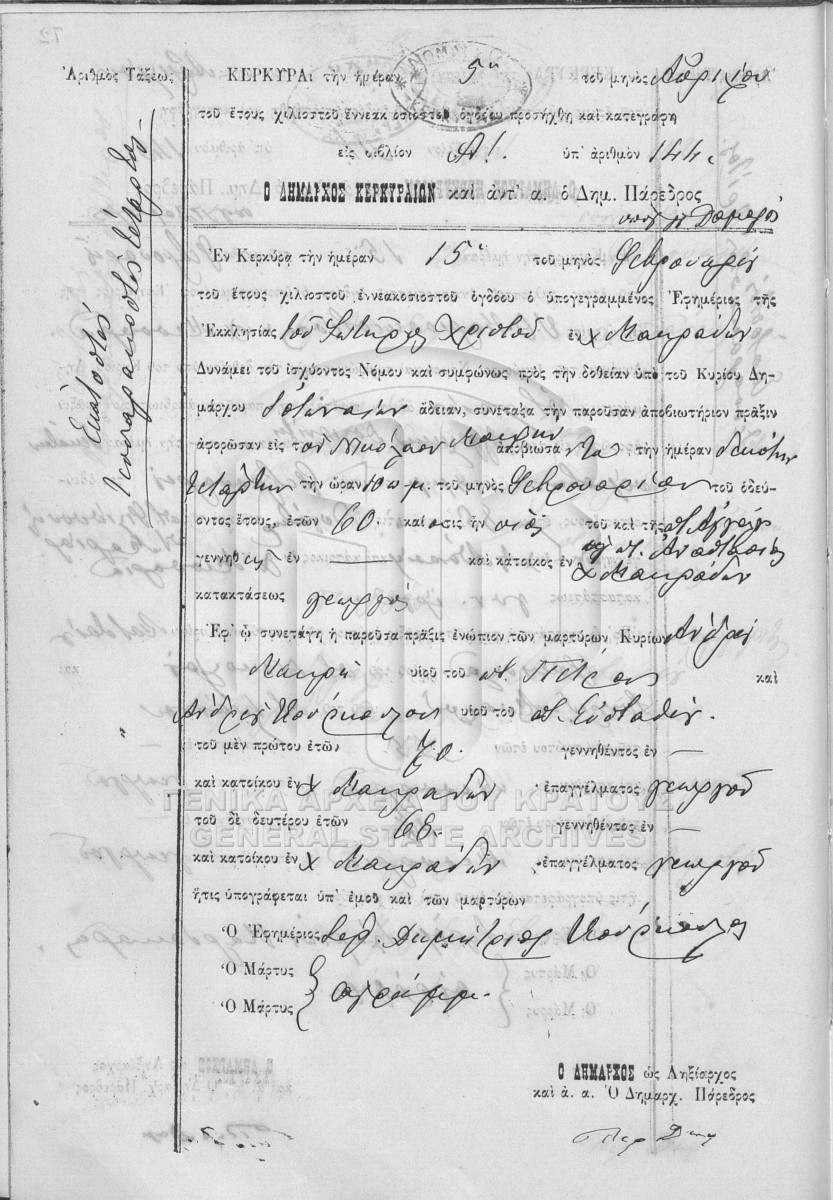 Ἀριθμὸς Τάξεως
Ἑκατοστὸς
τεσσαρακοστὸς τέταρτος
ΚΕΡΚΥΡΑι τὴν ἡμέραν 5ην τοῦ μηνὸς Ἀπριλίου
τοῦ ἔτους χιλιοστοῦ ἐννεακοσιοστοῦ ὀγδόου προσήχθη καὶ κατεγράφη
εἰς βιβλίον Α! ὑπ᾽ ἀριθμὸν 144.
Ὁ ΔΗΜΑΡΧΟΣ ΚΕΡΚΥΡΑΙΩΝ καὶ ἀντ᾽ α. ὁ Δημ. Πάρεδρος
Ἐν Κερκύρᾳ τὴν ἡμέραν 15ην τοῦ μηνὸς Φεβρουαρίου
τοῦ ἔτους χιλιοστοῦ ἐννεακοσιοστοῦ ὀγδόου ὁ ὑπογεγραμμένος Ἐφημέριος τῆς
Ἐκκλησίας τοῦ Σωτῆρος Χριστοῦ ἐν χ Μακράδων
Δυνάμει τοῦ ἰσχύοντος Νόμου καὶ συμφώνως πρὸς τὴν δοθεῖσαν ὑπὸ τοῦ Κυρίου Δη-
μάρχου ἄδειαν, συνεταξα τὴν παροῦσαν ἀποβιωτήριον πρᾶξιν
ἀφορῶσαν εἰς τὸν Νικόλαον Μακρῆν ἀποβιώσαντα τὴν ἡμέραν δεκάτην
τετάρτην τὴν ὥραν 10 π.μ. τοῦ μηνὸς Φεβρουαρίου τοῦ ὁδεύ-
οντος ἔτους, ἐτῶν 60 καὶ ὅστις ἦν υἱὸς τοῦ καὶ τῆς
ποτ. Ἀναστασίας
γεννηθεὶς ἐν — καὶ κάτοικος ἐν χ Μακράδων
κατακτάσεως γεωργὸς
Ἐφ᾽ ᾧ συνετάγη ἡ παροῦσα πρᾶξις ἐνώπιον τῶν μαρτύρων Κυρίων Ἀνδρέου
Μακρῆ υἱοῦ τοῦ ποτ. Πέτρου καὶ
Ἀνδρέου Κούρκουλου υἱοῦ τοῦ ποτ. Εὐσταθίου.
τοῦ μὲν πρώτου ἐτῶν 70. γεννηθέντος ἐν —
καὶ κατοίκου ἐν χ Μακράδων ἐπαγγέλματος γεωργοῦ
τοῦ δὲ δευτέρου ἐτῶν 68. γεννηθέντος ἐν —
καὶ κατοίκου ἐν χ Μακράδων ἐπαγγέλματος γεωργοῦ
ἥτις ὑπογράφεται ὑπ᾽ ἐμοῦ καὶ τῶν μαρτύρων
Ὁ Ἐφημέριος Δημήτριος Κούρκουλος
Ὁ Μάρτυς
ἀγράμμ.
Ὁ Μάρτυς
Ὁ ΔΗΜΑΡΧΟΣ ὡς Ληξίαρχος
καὶ ἀ. α. Ὁ Δημαρχ. Πάρεδρος
ΓΕΝΙΚΑ ΑΡΧΕΙΑ ΤΟΥ ΚΡΑΤΟΥΣ
GENERAL STATE ARCHIVES